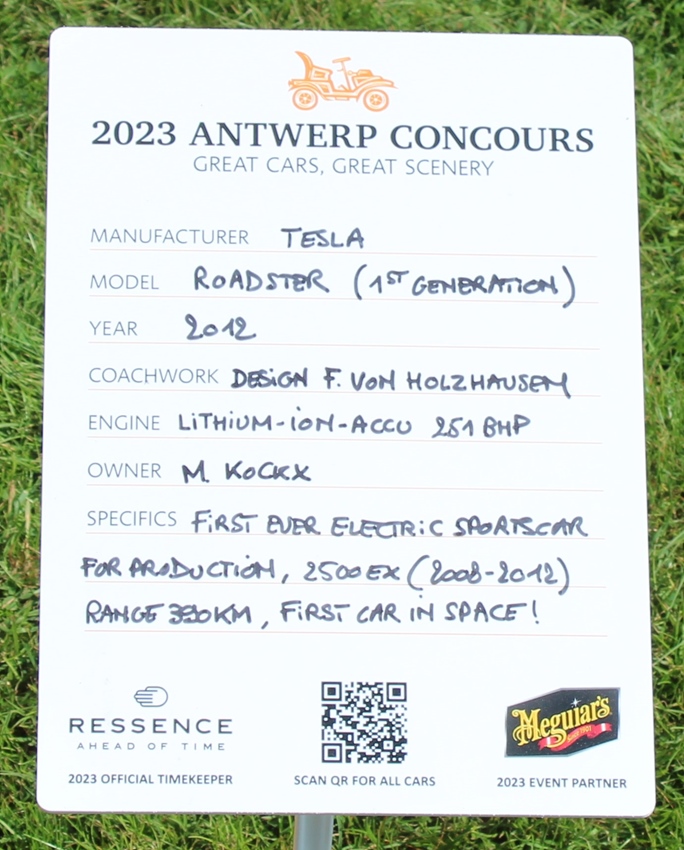 2023 ANTWERP CONCOURS
GREAT CARS, GREAT SCENERY
MANUFACTURER TESLA
MODEL ROADSTER (1ST GENERATION)
YEAR 2012
COACHWORK DESIGN F. VON HOLZHAUSEN
ENGINE LITHIUM-ION-ACCU 251 BHP
OWNER M. KOCKX
SPECIFICS FIRST EVER ELECTRIC SPORTSCAR
FOR PRODUCTION, 2500 EX (2008-2012)
RANGE 390KM, FIRST CAR IN SPACE!
RESSENCE
AHEAD OF TIME
2023 OFFICIAL TIMEKEEPER
SCAN QR FOR ALL CARS
Meguiar's
Since 1901
2023 EVENT PARTNER